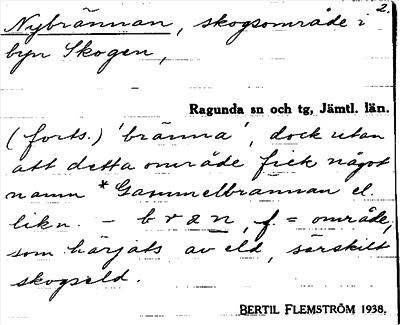 2.
Nybrännan, skogsområde i
byn Skogen,
Ragunda sn och tg, Jämtl. län.
(forts.) 'bränna', dock utan
att detta område fick något
namn *Gammelbrännan el.
likn. – brän, f. = område,
som härjats av eld, särskilt
skogseld.
BERTIL FLEMSTRÖM 1938.